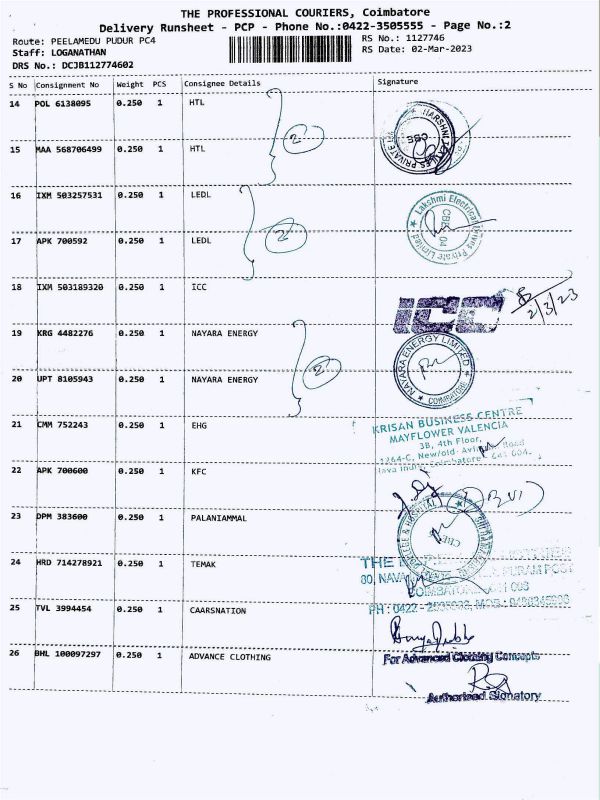 THE PROFESSIONAL COURIERS, Coimbatore
Delivery Runsheet - PCP - Phone No.:0422-3505555 - Page No.:2
Route: PEELAMEDU PUDUR PC4
RS No.: 1127746
Staff: LOGANATHAN
RS Date: 02-Mar-2023
DRS No.: DCJB112774602
S No Consignment No Weight PCS Consignee Details Signature
14 POL 6138095 0.250 1 HTL
2
15 MAA 568706499 0.250 1 HTL
CBE
16 IXM 503257531 0.250 1 LEDL
Lakshmi Electrical Drives Private Limited
CBE 04
2
17 APK 700592 0.250 1 LEDL
18 IXM 503189320 0.250 1 ICC
ICC
2/3/23
19 KRG 4482276 0.250 1 NAYARA ENERGY
NAYARA ENERGY LIMITED
COIMBATORE
2
20 UPT 8105943 0.250 1 NAYARA ENERGY
21 CMM 752243 0.250 1 EHG
KRISAN BUSINESS CENTRE
MAYFLOWER VALENCIA
3B, 4th Floor,
1264-C, New/old Road
22 APK 700600 0.250 1 KFC
23 DPM 383600 0.250 1 PALANIAMMAL
COLLEGE & HOSPITAL
CBE
24 HRD 714278921 0.250 1 TEMAK
THE
80, NAVA
PH : 0422 -
25 TVL 3994454 0.250 1 CAARSNATION
26 BHL 100097297 0.250 1 ADVANCE CLOTHING
For Advanced Clothing Concepts
Authorised Signatory